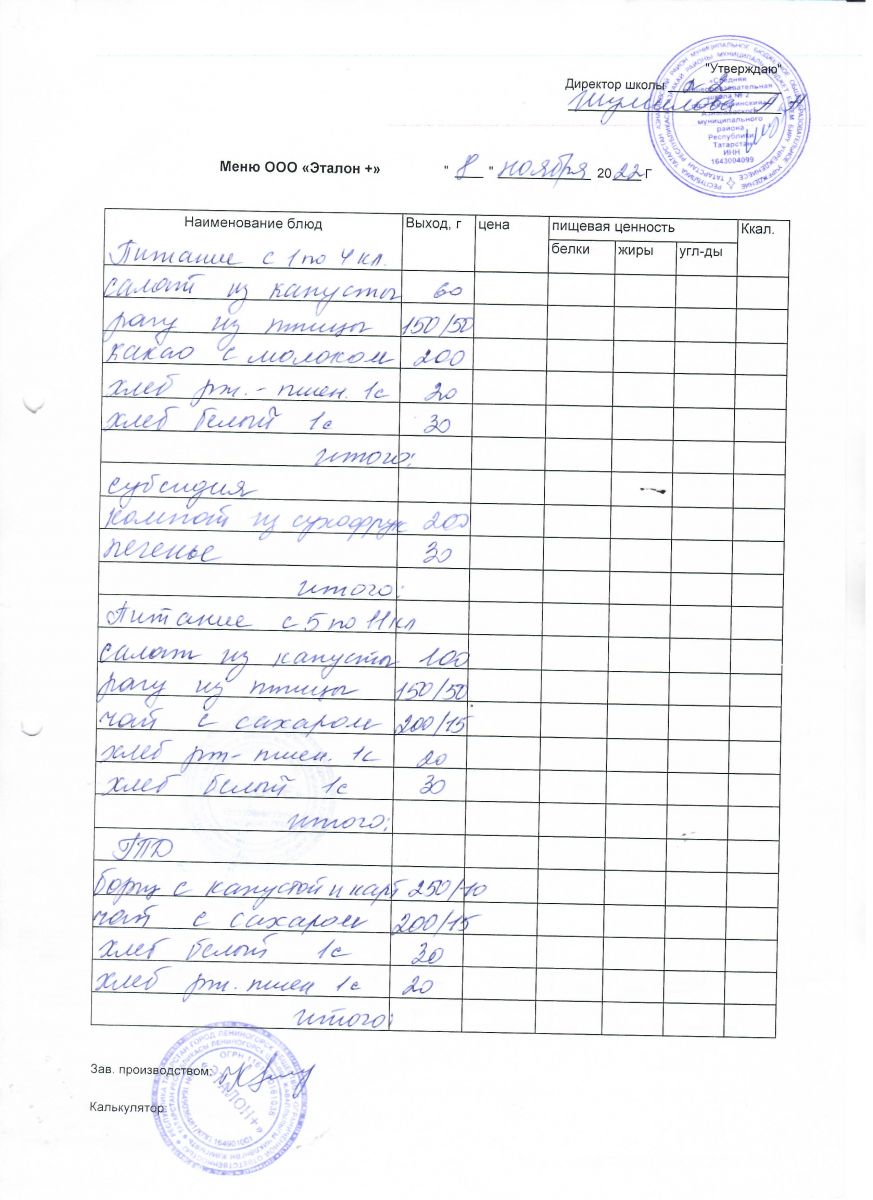 "Утверждаю"
Директор школы
Меню ООО «Эталон +» " 8 " ноября 2022 г
Наименование блюд Выход, г цена пищевая ценность Ккал.
белки жиры угл-ды
Питание с 1 по 4 кл.
салат из капусты 60
рагу из птицы 150/50
какао с молоком 200
хлеб рж.-пшен. 1с 20
хлеб белый 1с 30
итого:
субсидия
компот из сухофрук 200
печенье 30
итого:
Питание с 5 по 11 кл
салат из капусты 100
рагу из птицы 150/50
чай с сахаром 200/15
хлеб рж-пшен. 1с 20
хлеб белый 1с 30
итого:
ГПД
борщ с капустой и карт 250/10
чай с сахаром 200/15
хлеб белый 1с 30
хлеб рж. пшен 1с 20
итого:
Зав. производством:
Калькулятор:
«Средняя
общеобразовательная
школа № 2
муниципального
района
Республики
Татарстан
ИНН
1643004099
«ЭТАЛОН+»